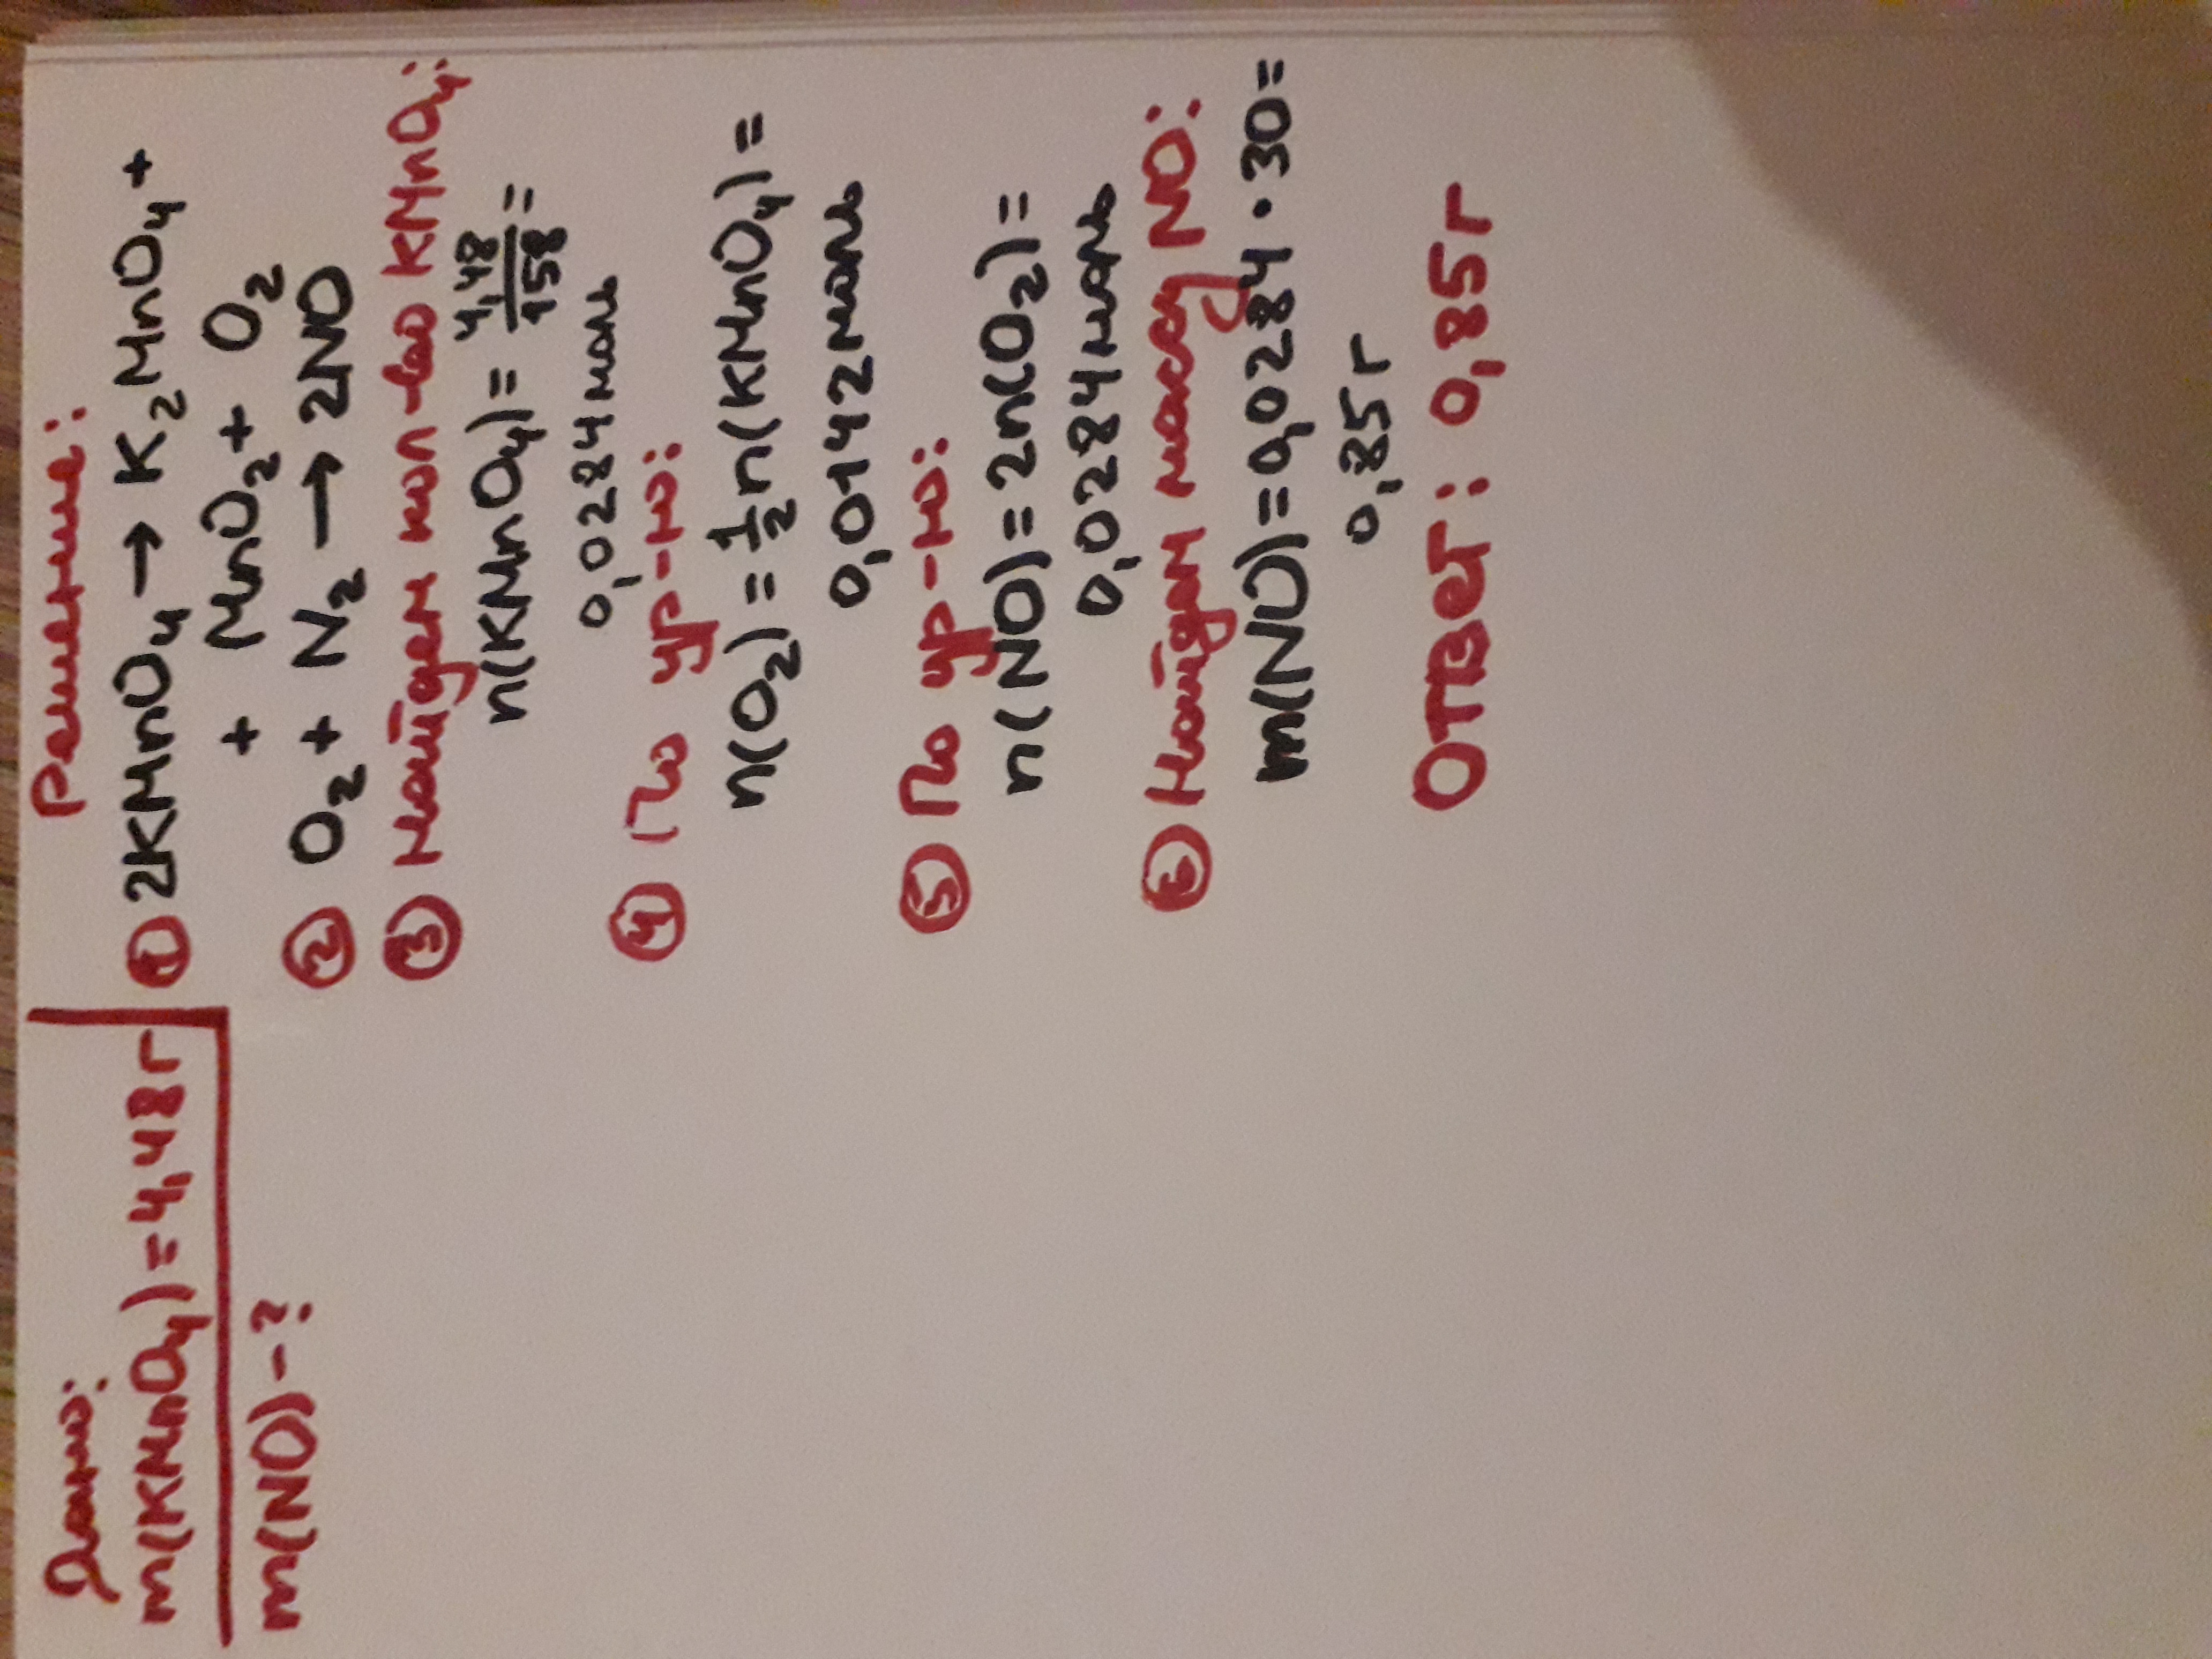 Дано:
m(KMnO₄) = 4,48г
m(NO) - ?
Решение:
① 2KMnO₄ → K₂MnO₄ +
+ MnO₂ + O₂
② O₂ + N₂ → 2NO
③ Найдем кол-во KMnO₄:
n(KMnO₄) = 4,48/158 =
0,0284 моль
④ По ур-ю:
n(O₂) = 1/2 n(KMnO₄) =
0,0142 моль
⑤ По ур-ю:
n(NO) = 2n(O₂) =
0,0284 моль
⑥ Найдем массу NO:
m(NO) = 0,0284 • 30 =
0,85 г
Ответ: 0,85 г